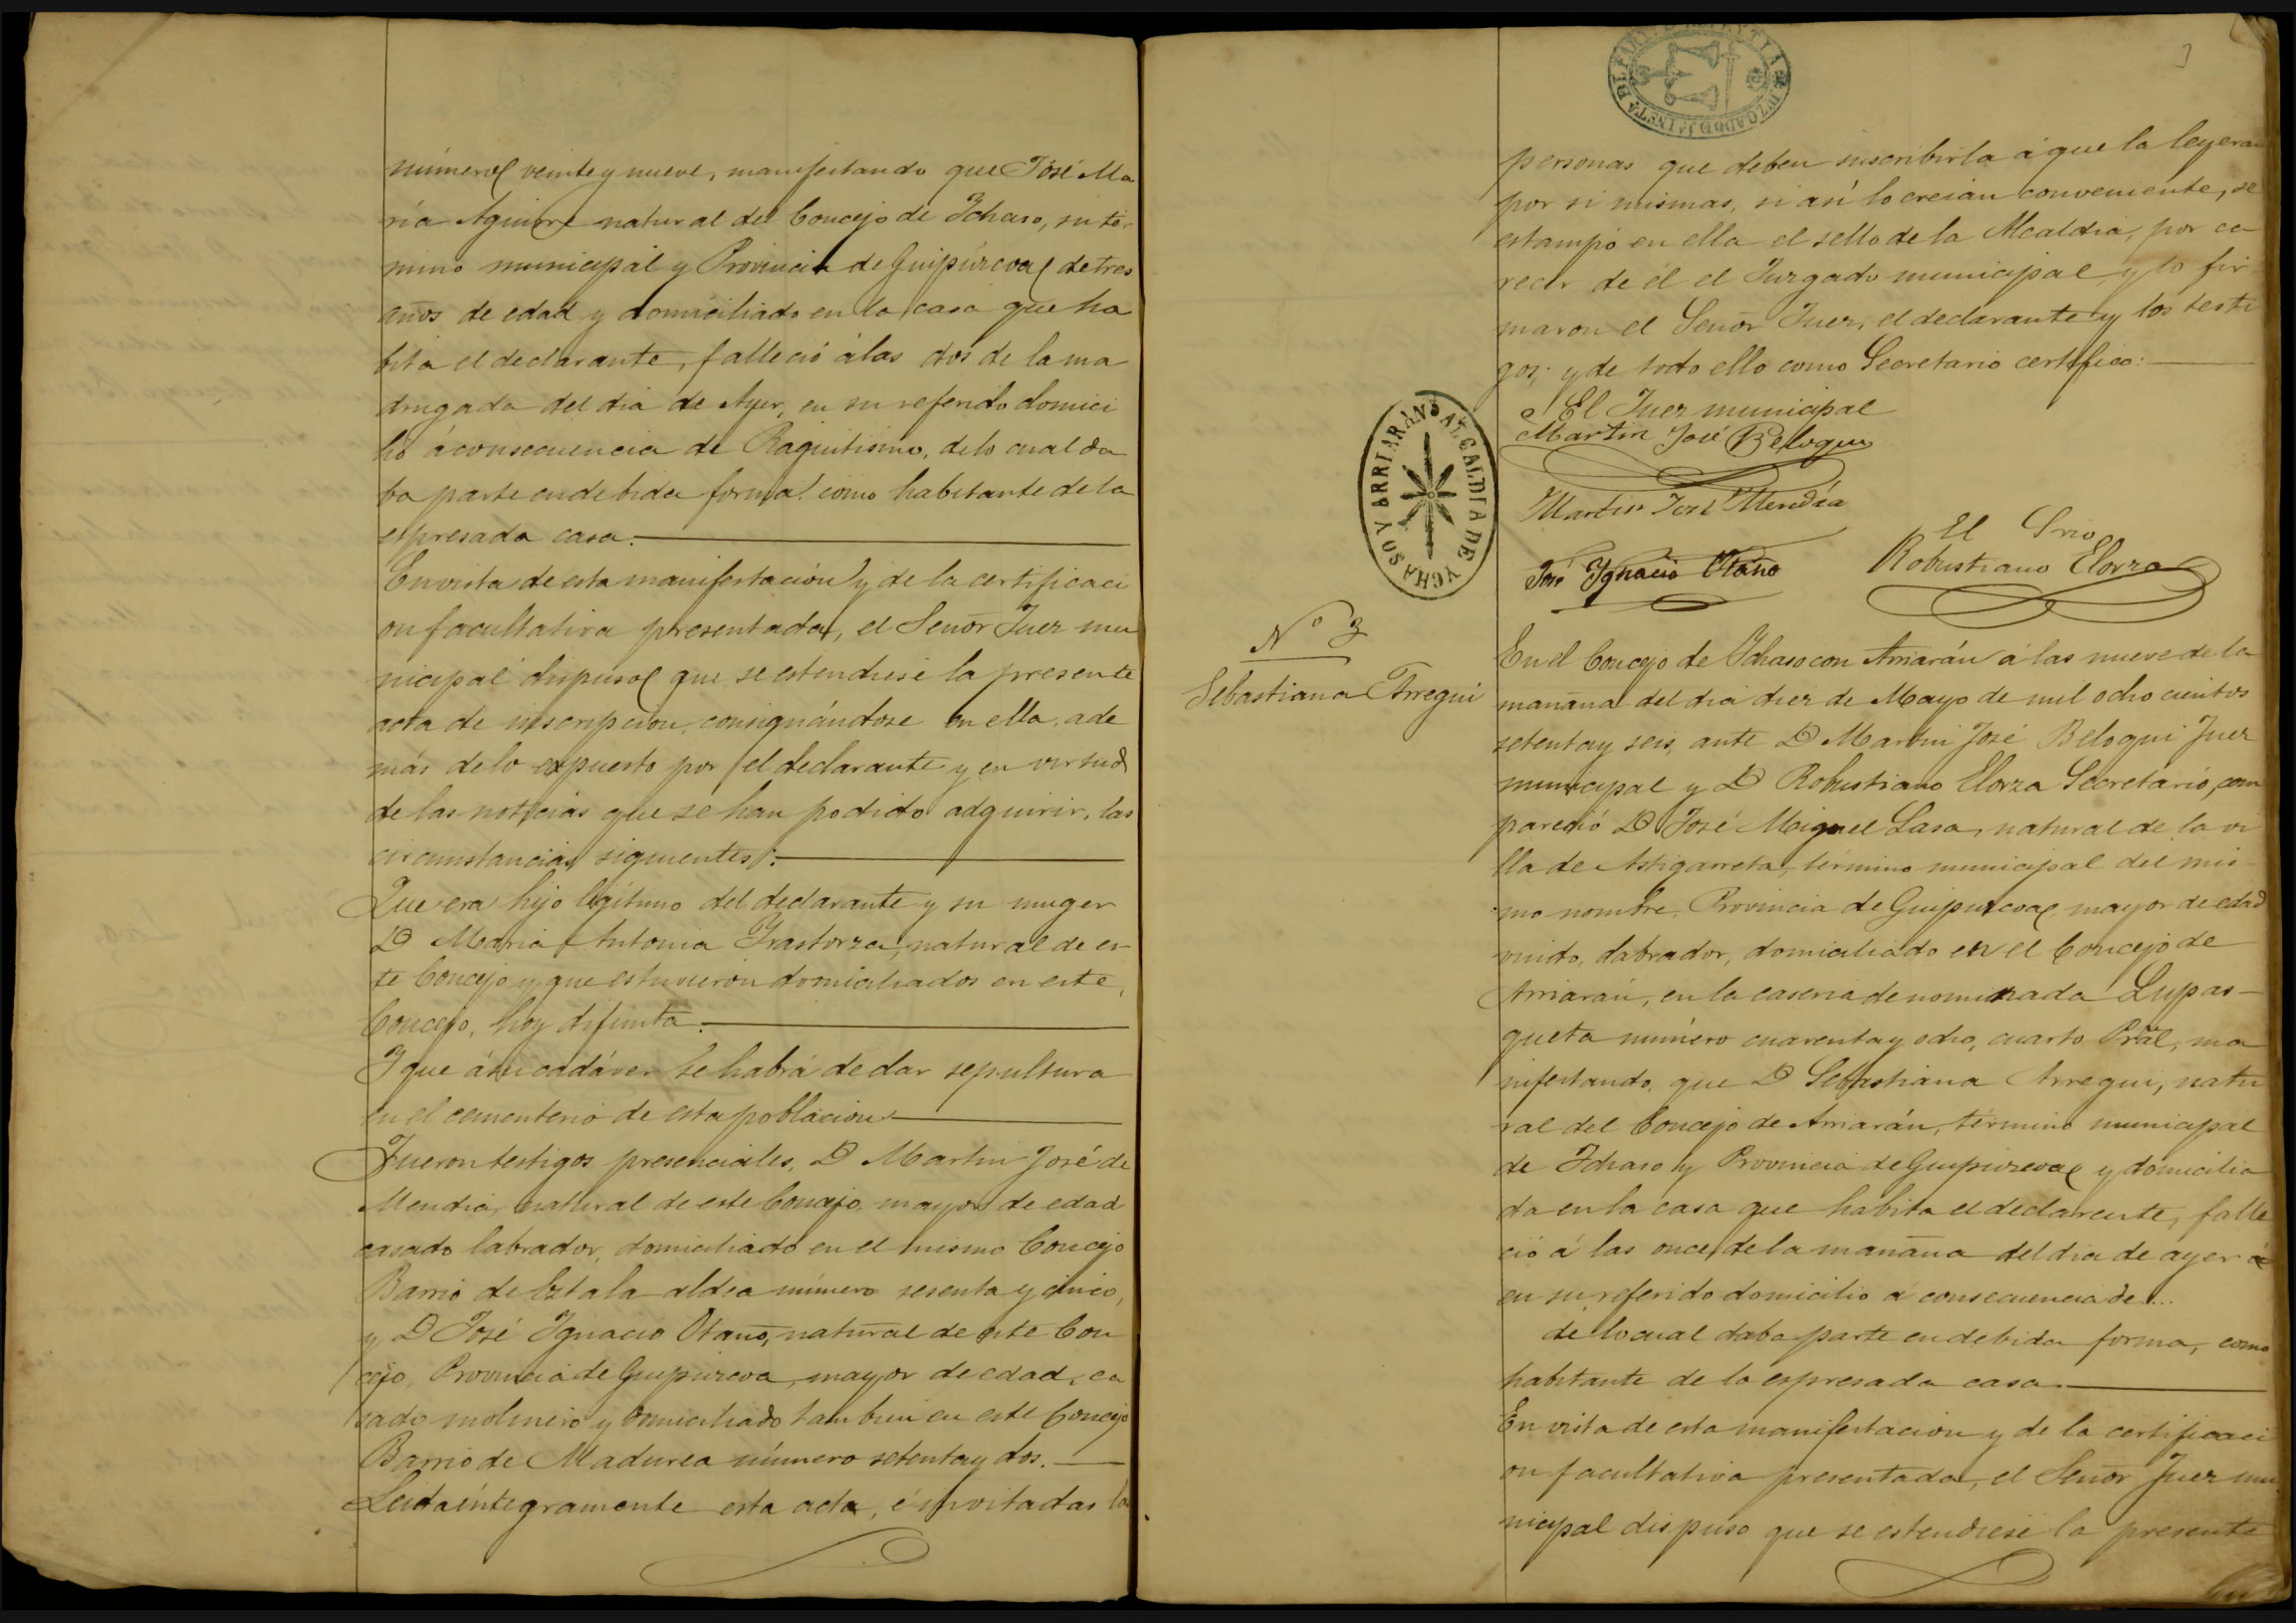 número veinte y nueve, manifestando que José Ma
ria Aguirre natural del Concejo de Ichaso, su tér
mino municipal y Provincia de Guipúzcoa de tres
años de edad y domiciliado en la casa que ha
bita el declarante, falleció á las dos de la ma
drugada del dia de Ayer, en su referido domici
lio á consecuencia de Raquitismo, de lo cual da
ba parte en debida forma como habitante de la
espresada casa.
En vista de esta manifestación y de la certificaci
on facultativa presentada, el Señor Juez mu
nicipal dispuso que se estendiese la presente
acta de inscripcion, consignándose en ella, ade
más de lo expuesto por el declarante y en virtud
de las noticias que se han podido adquirir, las
circunstancias siguientes:
Que era hijo legítimo del declarante y su muger
D Maria Antonia Yrastorza, natural de es-
te Concejo y que estuvieron domiciliados en este
Concejo, hoy difunta.
Y que á su cadáver se habrá de dar sepultura
en el cementerio de esta poblacion
Fueron testigos presenciales, D Martin José de
Mendia, natural de este Concejo, mayor de edad
casado labrador, domiciliado en el mismo Concejo
Barrio de aldea número sesenta y cinco,
y D José Ygnacio Otaño, natural de este Con
cejo, Provincia de Guipúzcoa, mayor de edad, ca
sado molinero y domiciliado tambien en este Concejo
Barrio de Madurea número setenta y dos.
Leida íntegramente esta acta, é invitadas la
personas que deben suscribirla á que la leyeran
por si mismas, si así lo creian conveniente, se
estampó en ella el sello de la Alcaldia, por ca
recer de él el Juzgado municipal y lo fir
maron el Señor Juez, el declarante y los testi
gos; y de todo ello como Secretario certifico:
El Juez municipal
Martin José Beloqui
Martin José Mendía
El Srio
José Ygnacio Otaño
Robustiano Elorza
ALCALDIA DE YCHASO Y ARRIARÁN
Nº 3
Sebastiana Arregui
En el Concejo de Ychaso con Arriarán á las nueve de la
mañana del dia diez de Mayo de mil ocho cientos
setenta y seis, ante D Martin José Beloqui Juez
municipal y D Robustiano Elorza Secretario, com
pareció D José Miguel Lasa, natural de la vi
lla de Astigarreta, término municipal del mis-
mo nombre, Provincia de Guipuzcoa, mayor de edad
viudo, labrador, domiciliado en el Concejo de
Arriarán, en la caseria denominada Lupas-
queta número cuarenta y ocho, cuarto Pral, ma
nifestando, que D Sebastiana Arregui, natu
ral del Concejo de Arriarán, término municipal
de Ichaso y Provincia de Guipúzcoa y domicilia
da en la casa que habita el declarante, falle
ció á las once de la mañana del dia de ayer
en su referido domicilio á consecuencia de...
de lo cual daba parte en debida forma, como
habitante de la espresada casa.
En vista de esta manifestacion y de la certificaci
on facultativa presentada, el Señor Juez mu
nicipal dispuso que se estendiese la presente